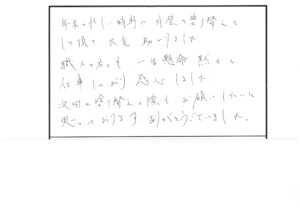 年末の忙しい時期に、外壁の塗り替えを
して頂き、大変助かりました。
職人さん達も、一生懸命黙々と
仕事しており感心しました。
次回の塗り替えの際も、お願いしたいと
思っております。ありがとうございました。